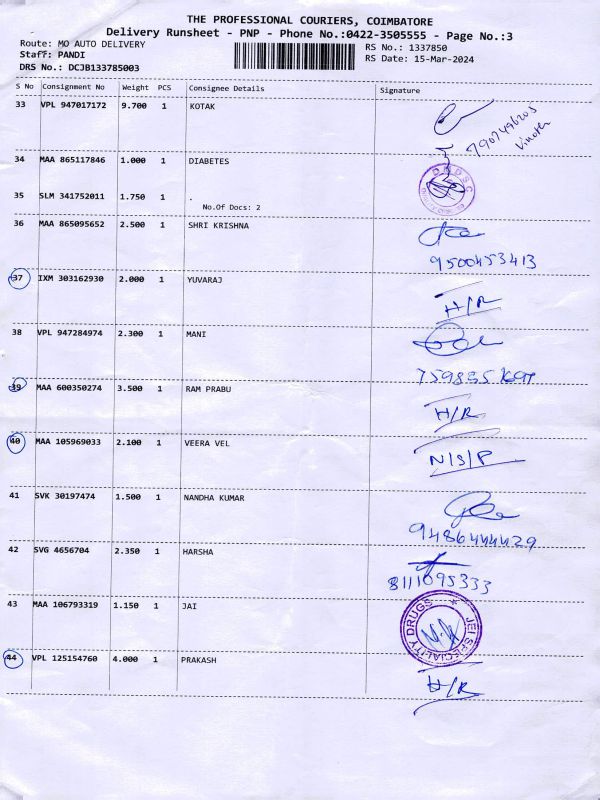 THE PROFESSIONAL COURIERS, COIMBATORE
Delivery Runsheet - PNP - Phone No.:0422-3505555 - Page No.:3
Route: MO AUTO DELIVERY
RS No.: 1337850
Staff: PANDI
RS Date: 15-Mar-2024
DRS No.: DCJB133785003
S No Consignment No Weight PCS Consignee Details Signature
33 VPL 947017172 9.700 1 KOTAK
7907496205
Vinoth
34 MAA 865117846 1.000 1 DIABETES
DMDSC
35 SLM 341752011 1.750 1 .
No.Of Docs: 2
36 MAA 865095652 2.500 1 SHRI KRISHNA
9500453413
37 IXM 303162930 2.000 1 YUVARAJ
H/R
38 VPL 947284974 2.300 1 MANI
39 MAA 600350274 3.500 1 RAM PRABU
H/R
40 MAA 105969033 2.100 1 VEERA VEL
N/S/P
41 SVK 30197474 1.500 1 NANDHA KUMAR
9486444429
42 SVG 4656704 2.350 1 HARSHA
8111095333
43 MAA 106793319 1.150 1 JAI
JEI SPECIALITY DRUGS
44 VPL 125154760 4.000 1 PRAKASH
H/R